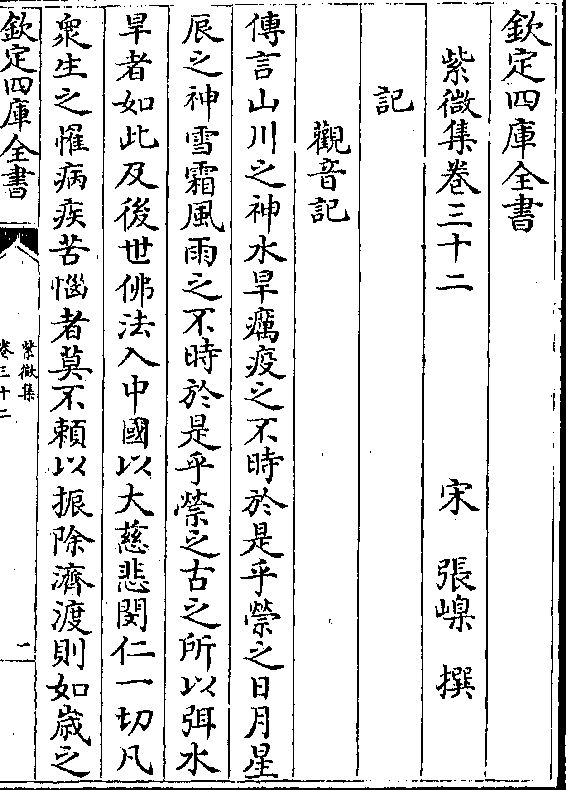 欽定四庫全書
紫微集卷三十二
宋 張嵲 撰
記
觀音記
傳言山川之神水旱癘疫之不時於是乎禜之日月星
辰之神雪霜風雨之不時於是乎禜之古之所以弭水
旱者如此及後世佛法入中國以大慈悲閔仁一切凡
衆生之罹病疾苦惱者莫不賴以振除濟渡則如歲之
欽定四庫全書
紫微集
卷三十二
二